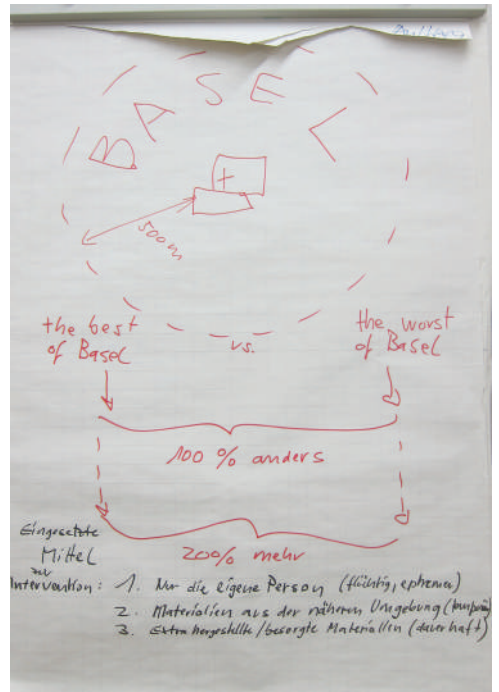 BASEL
500m
the best
of Basel
vs.
the worst
of Basel
100 % anders
200% mehr
Eingesetzte
Mittel
zur
Intervention: 1. Nur die eigene Person (flüchtig, ephemer)
2. Materialien aus der näheren Umgebung (temporär)
3. Extra hergestellte/besorgte Materialien (dauerhaft)